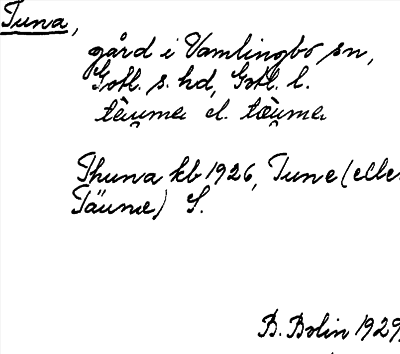 Tuna,
gård i Vamlingbo sn,
Gotl. s. hd, Gotl. l.
tè̯u̯mɐ el. tæ̀u̯mɐ
Thuna kb 1926, Tune (eller
Täune) S.
B. Bolin 1929